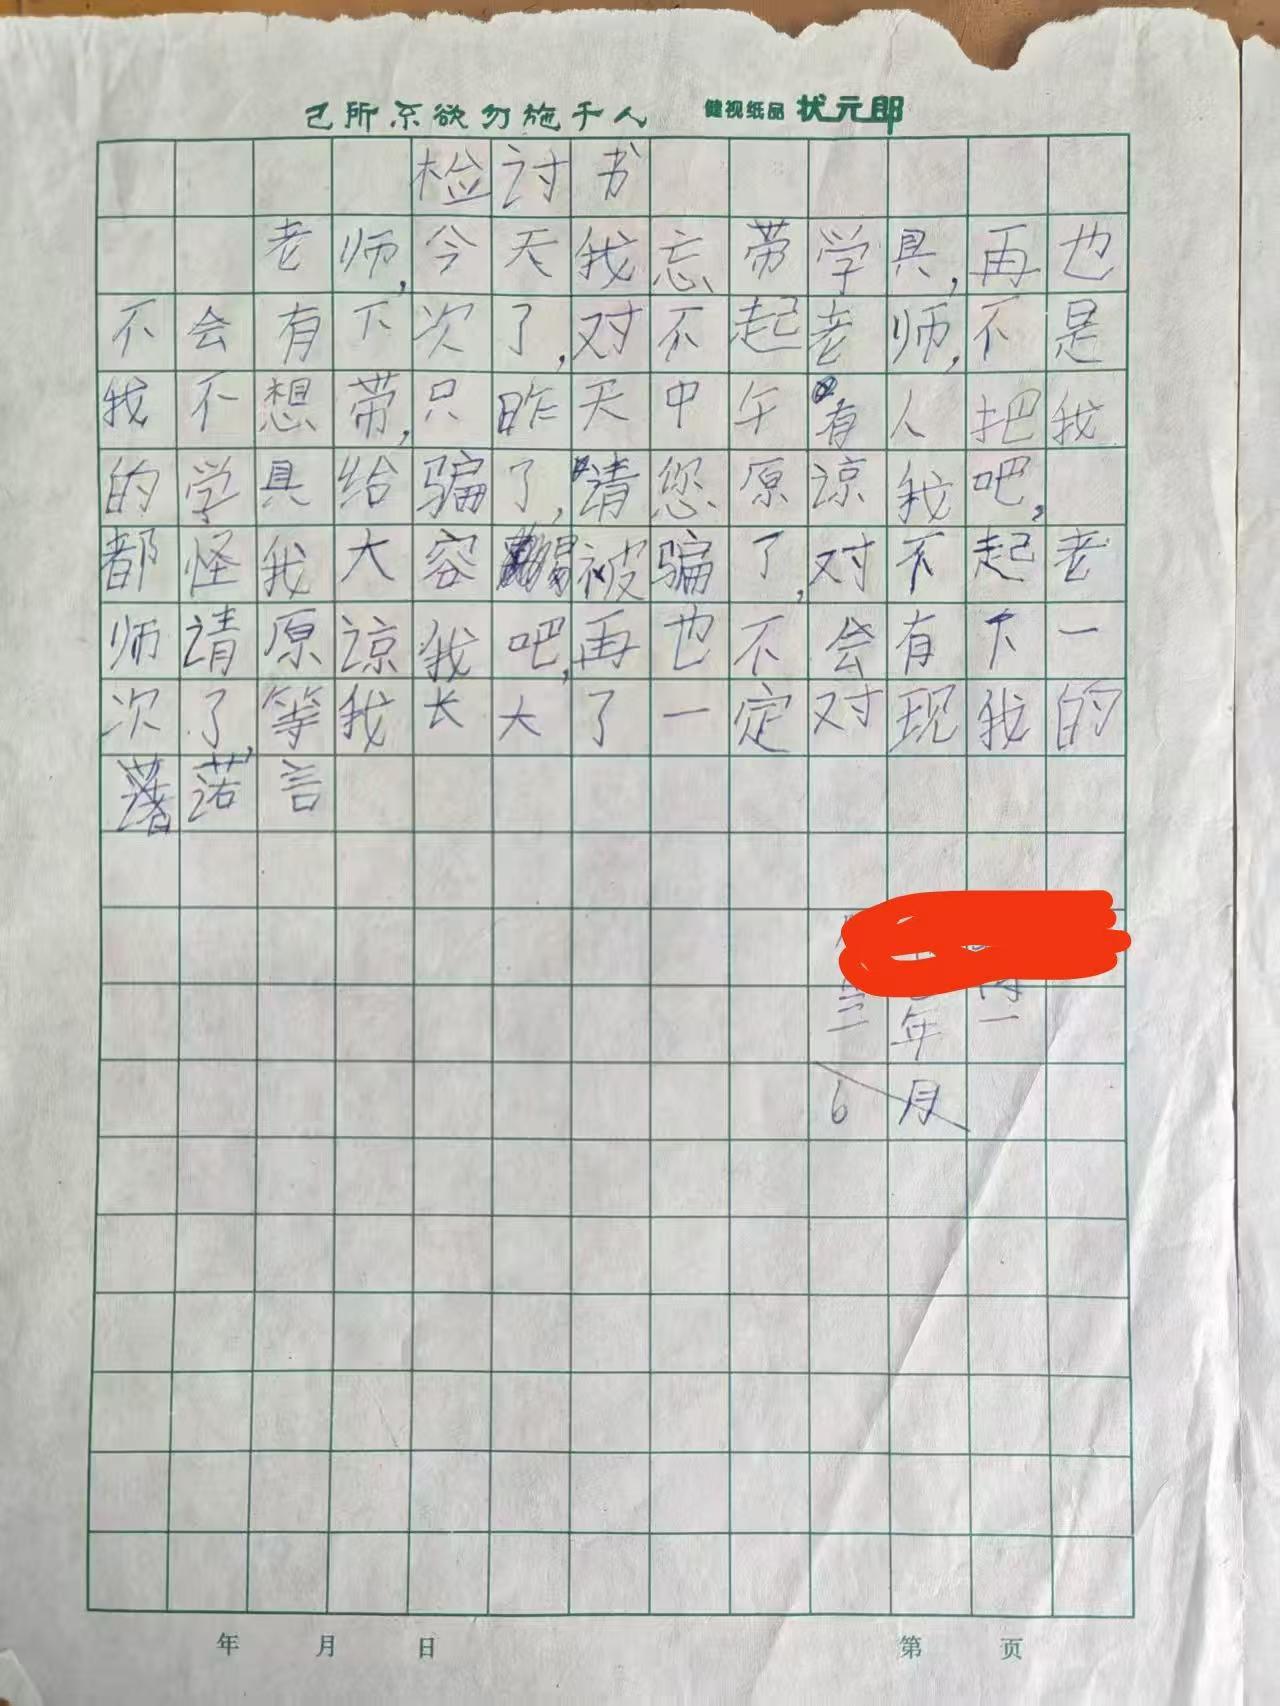 己所不欲勿施于人 健视纸品 状元郎
检讨书
老师,今天我忘带学具,再也
不会有下次了,对不起老师,不是
我不想带,只昨天中午有人把我
的学具给骗了,请您原谅我吧,
都怪我大容易被骗了,对不起老
师请原谅我吧,再也不会有下一
次了,等我长大了一定对现我的
诺言
三年一
6月
年 月 日 第 页